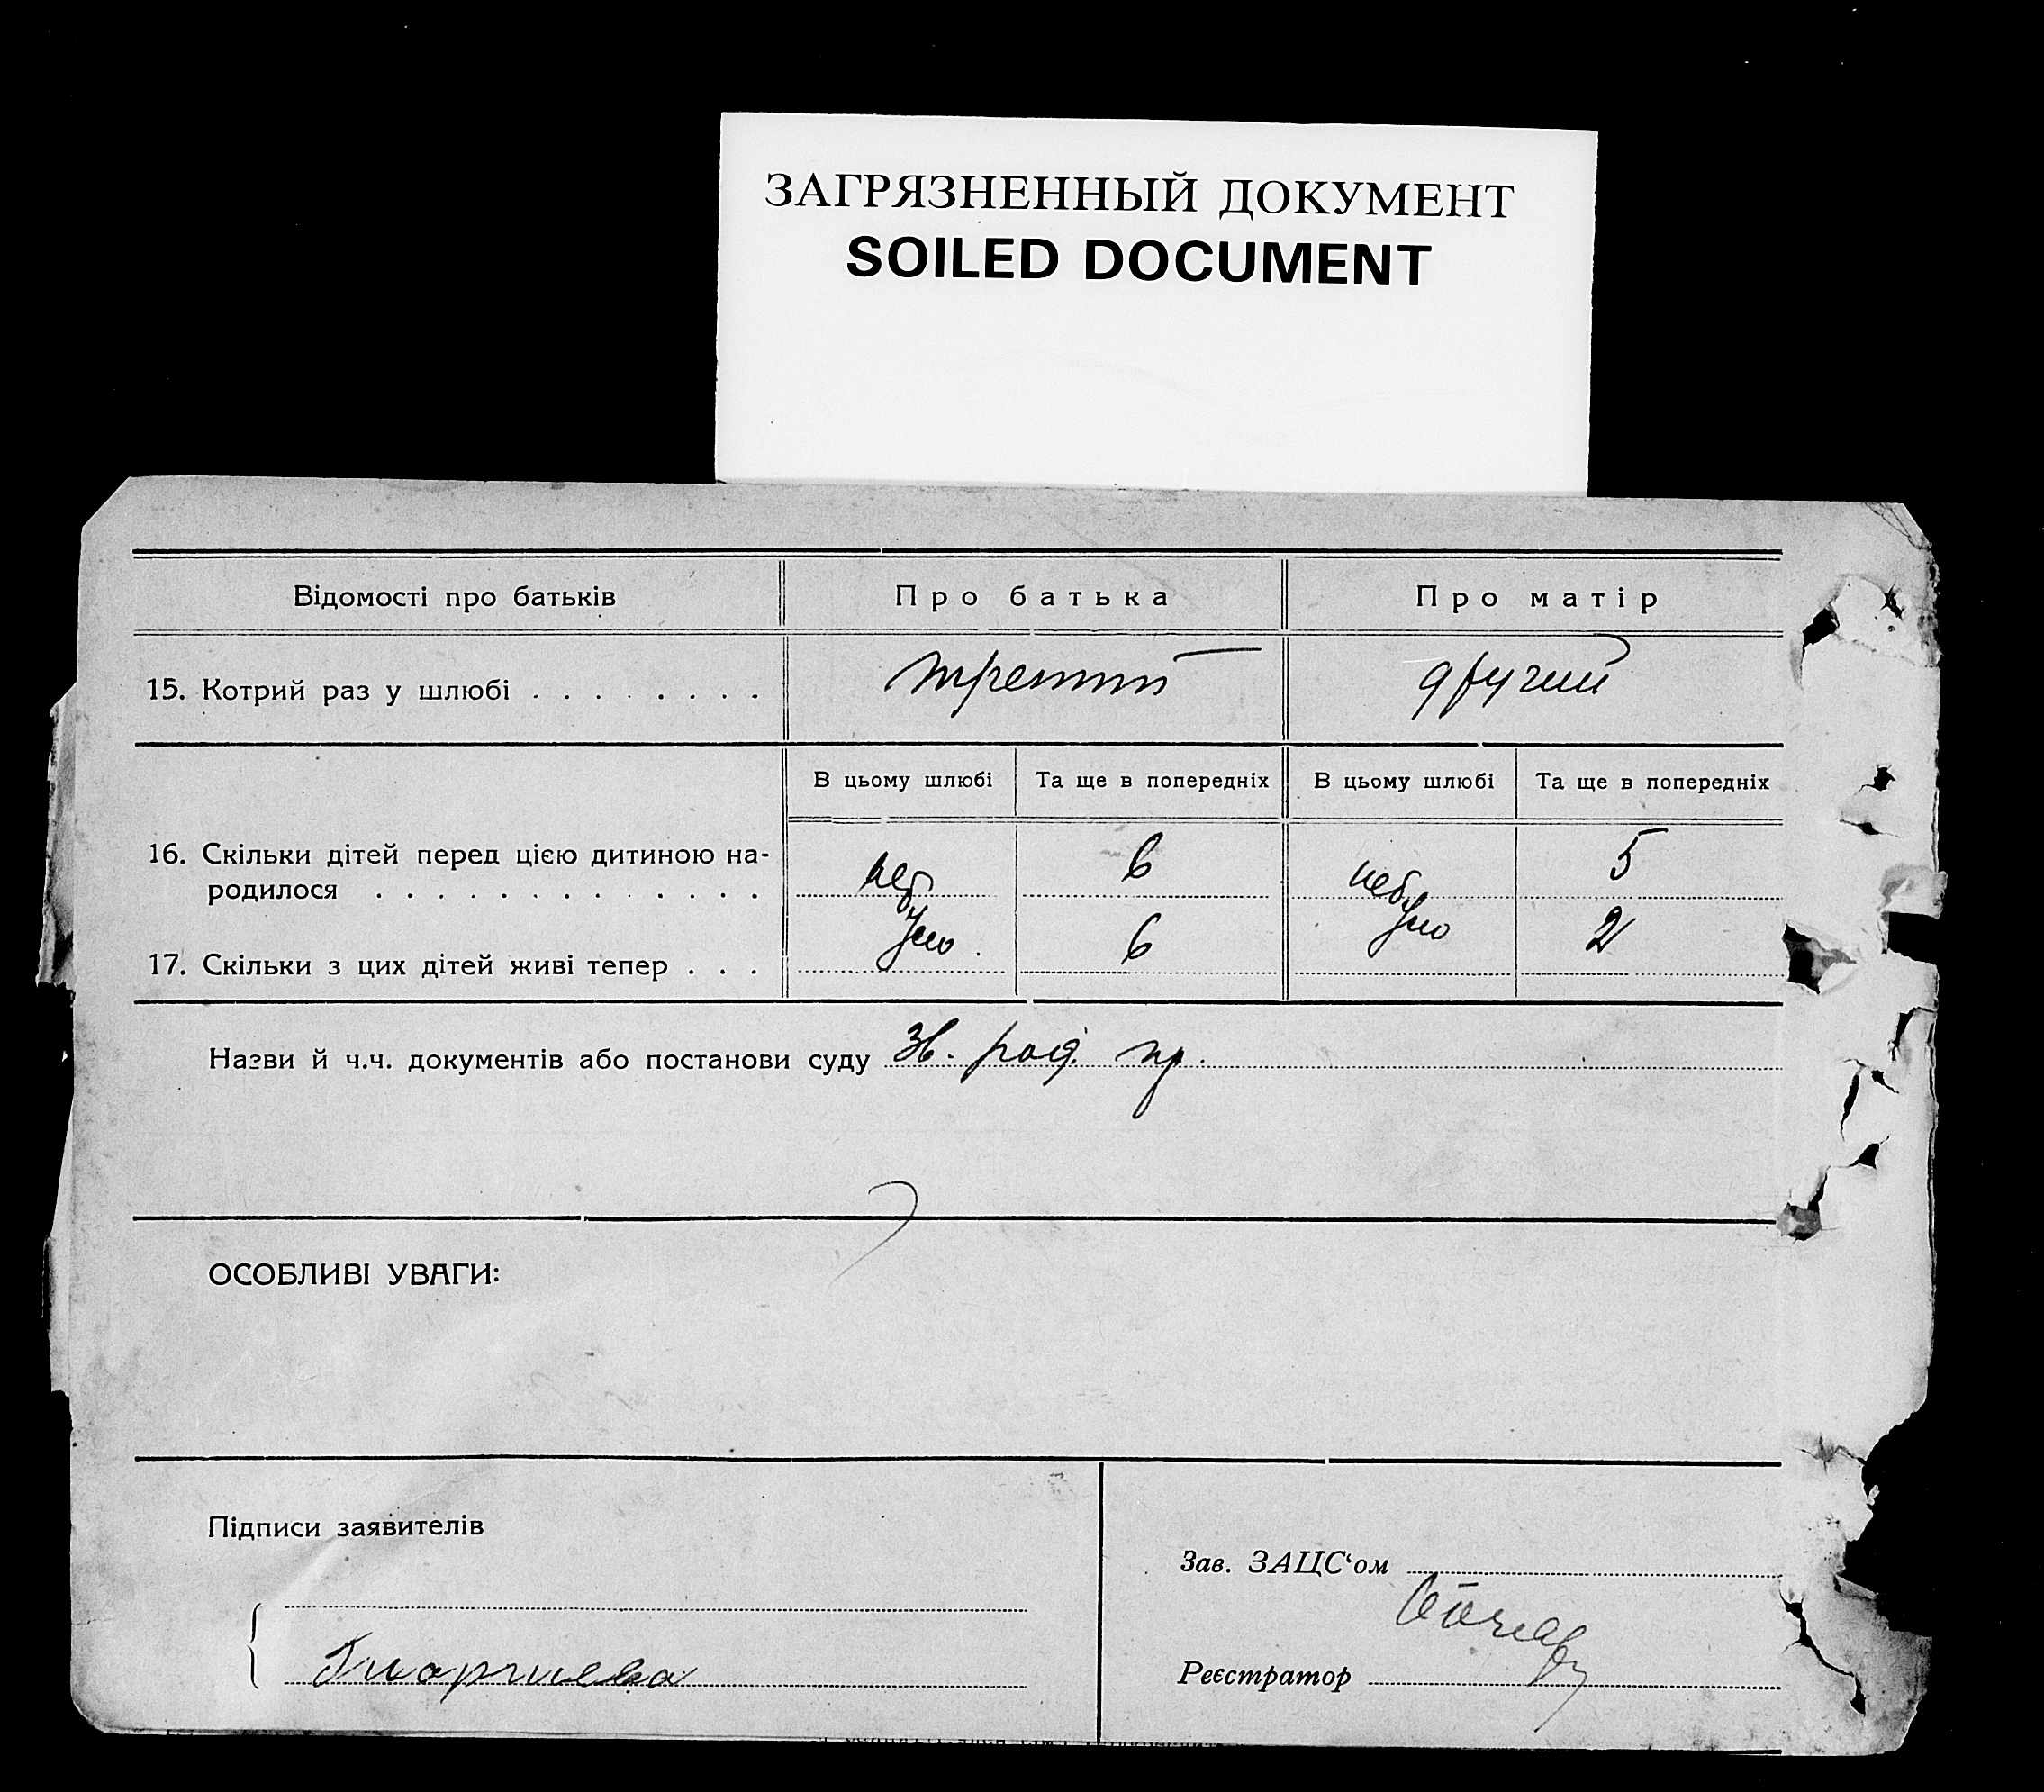 ЗАГРЯЗНЕННЫЙ ДОКУМЕНТ
SOILED DOCUMENT
Відомості про батьків Про батька Про матір
15. Котрий раз у шлюбі . . . . . . . . третий другий
В цьому шлюбі Та ще в попередніх В цьому шлюбі Та ще в попередніх
16. Скільки дітей перед цією дитиною на-
родилося . . . . . . . . . . . . . 6 5
17. Скільки з цих дітей живі тепер . . . 6 2
Назви й ч.ч. документів або постанови суду Зв. род. пр.
ОСОБЛИВІ УВАГИ:
Підписи заявителів
Зав. ЗАЦС‘ом
Реєстратор